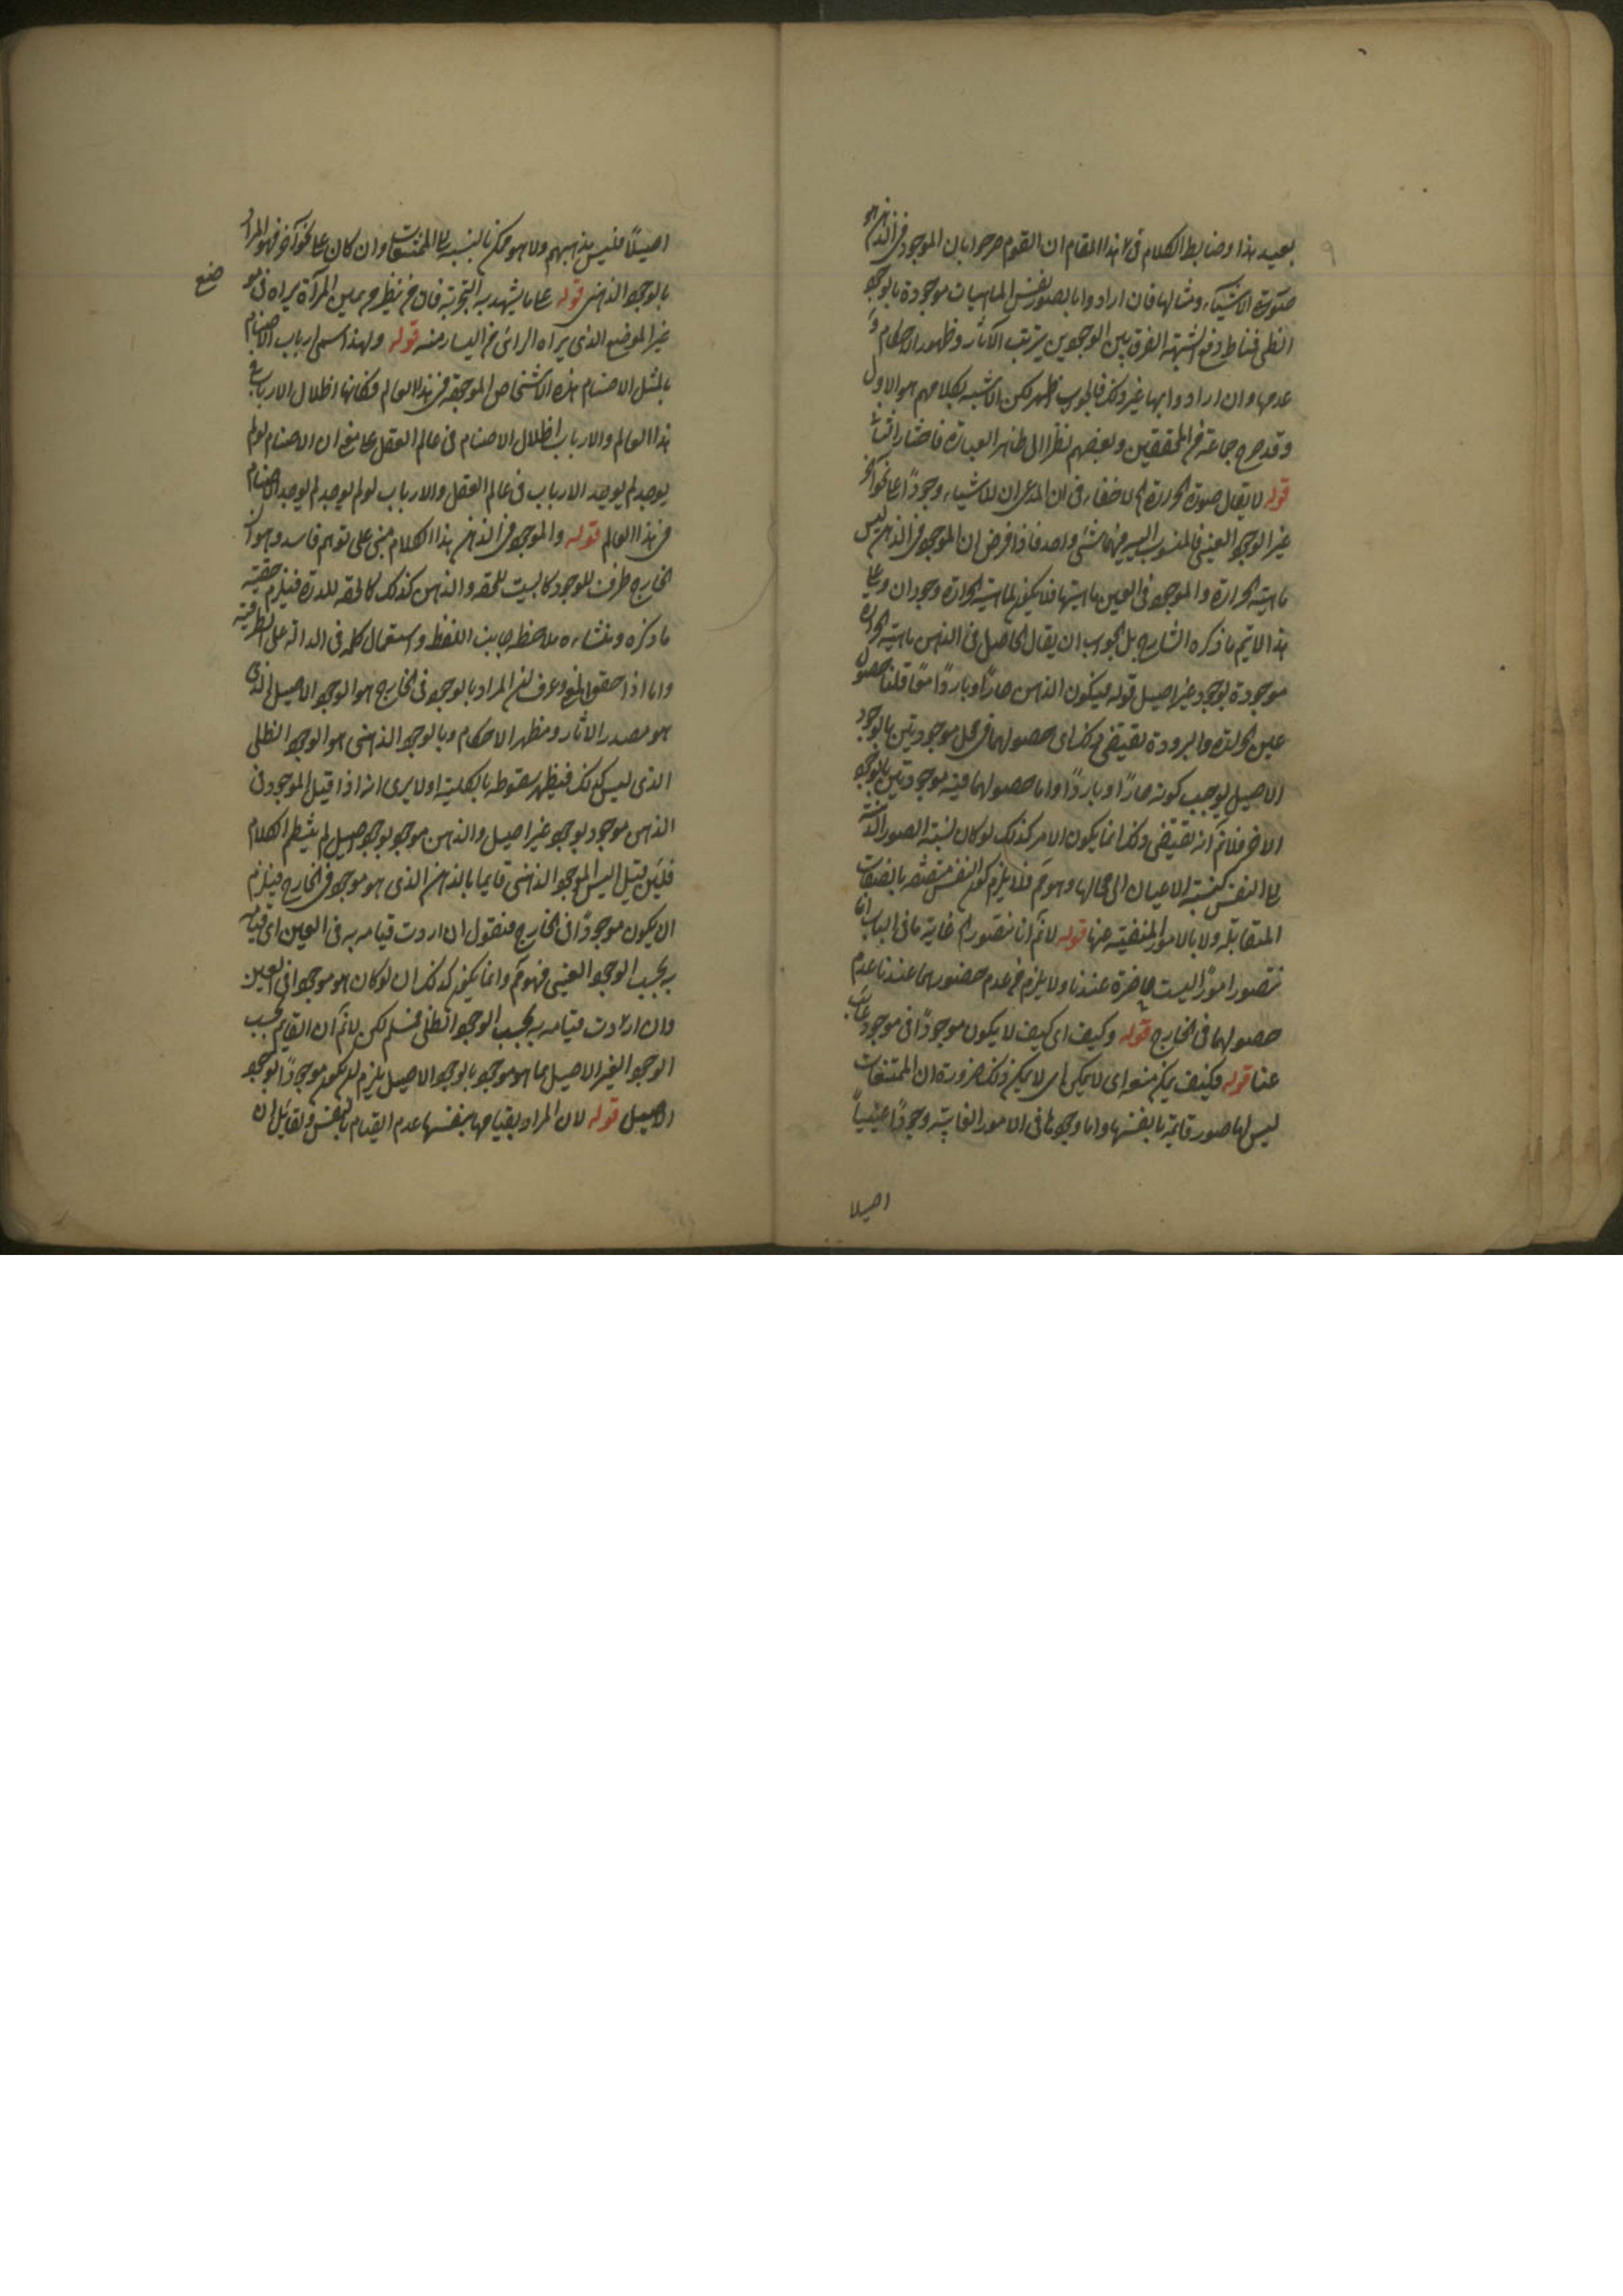 بعيد هذا وضابط الكلام فى هذا المقام ان القوم صرحوا بان الموجود فى الذهن هو
صورة الاشياء ومثالها فان ارادوا بالصور نفس الماهيات موجودة بالوجود
الظلى فمناط دفع الشبهة الفرق بين الوجودين بترتب الآثار وظهور الاحكام و
عدمها وان ارادوا بها غير ذلك فالجواب ظهر لكن الاشبه بكلامهم هو الاول
وقد صرح جماعة من المحققين وبعضهم نظرا الى ظاهر العبارة فاختار
قوله لا يقال صورة الحرارة الخ لا خفاء فى ان المدعى ان للاشياء وجودًا على نحو آخر
غير الوجود العينى فالمنسوب اليه فيهما شئ واحد فاذا فرض ان الموجود فى الذهن ليس
ماهية الحرارة والموجود فى العين ماهيتها فلا يكون لماهية الحرارة وجودان وعلى
هذا لا يتم ما ذكره الشارح بل الجواب ان يقال الحاصل فى الذهن ماهية الحرارة
موجودة بوجود غير اصيل قوله فيكون الذهن حارًا وباردًا معًا قلنا حصول
عين الحرارة والبرودة يقتضى ذلك اى حصولهما فى محل موجودتين بالوجود
الاصيل يوجب كونه حارًا او باردًا واما حصولهما فيه موجودتين بالوجود
الاخر فلا نم انه يقتضى ذلك انما يكون الامر كذلك لو كان نسبة الصور الذهنية
الى النفس كنسبة الاعيان الى محالها وهو مم فلا يلزم كون النفس متصفة بالصفات
المتقابلة ولا بالامور المنفية عنها قوله لا نم انا نتصور الخ غاية ما فى الباب انا
نتصور امورًا ليست حاضرة عندنا ولا يلزم من عدم حضورها عندنا عدم
حصولها فى الخارج قوله وكيف اى كيف لا يكون موجودًا فى موجود غائب
عنا قوله فكيف يمكن منع اى لا يمكن اى لا يمكن ذلك ضرورة ان الممتنعات
ليس لها صور قائمة بانفسها واما وجودها فى الامور الغايبة وجودًا عينيًا
اصيلا
اصيلًا فليس مذهبهم ولا هو ممكن بالنسبة الى الممتنعات وان كان على نحو آخر فهو المراد
بالوجود الذهنى قوله على ما يشهد به التجربة فان من نظر من يمين المرآة يراه فى مو
ضع
غير الموضع الذى يراه الرائى من اليسار منه قوله ولهذا اسمى ارباب الاصنام
بالمثل الاصنام هذه الاشخاص الموجودة فى هذا العالم فكانها اظلال الارباب فى
هذا العالم والارباب اظلال الاصنام فى عالم العقل على معنى ان الاصنام لو لم
يوجد لم يوجد الارباب فى عالم العقل والارباب لو لم يوجد لم يوجد الاصنام
فى هذا العالم قوله والموجود فى الذهن هذا الكلام مبنى على توهم فاسد وهو ان
الخارج ظرف للوجود كالبيت للحقة والذهن كذلك كالحقة للدرة فيلزم حقية
ما ذكره ومنشاءه ملاحظة جانب اللفظ واستعمال كلمة فى الدالة على الظرفية
واما اذا حقق المعنى وعرف ان المراد بالوجود فى الخارج هو الوجود الاصيل الذى
هو مصدر الاثار ومظهر الاحكام وبالوجود الذهنى هو الوجود الظلى
الذى ليس كذلك فيظهر سقوطه بالكلية اولا يرى انه اذا قيل الموجود فى
الذهن موجود بوجود غير اصيل والذهن موجود بوجود اصيل لم ينتظم الكلام
فلئن قيل اليس الموجود الذهنى قايما بالذهن الذى هو موجود فى الخارج فيلزم
ان يكون موجودًا فى الخارج فنقول ان اردت قيامه به فى العين اى قيامه
به بحسب الوجود العينى فهو مم وانما يكون كذلك ان لو كان هو موجودا فى العين
وان اردت قيامه به بحسب الوجود الظلى فمسلم لكن لا نم ان القايم بحسب
الوجود الغير الاصيل بما هو موجود بالوجود الاصيل يلزم ان يكون موجودًا بالوجود
الاصيل قوله لان المراد بقيامها بنفسها عدم القيام بالنفس ولقايل ان